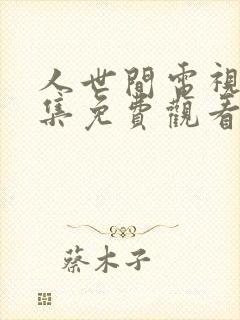 人世間電視
集免費觀看
蔡木子